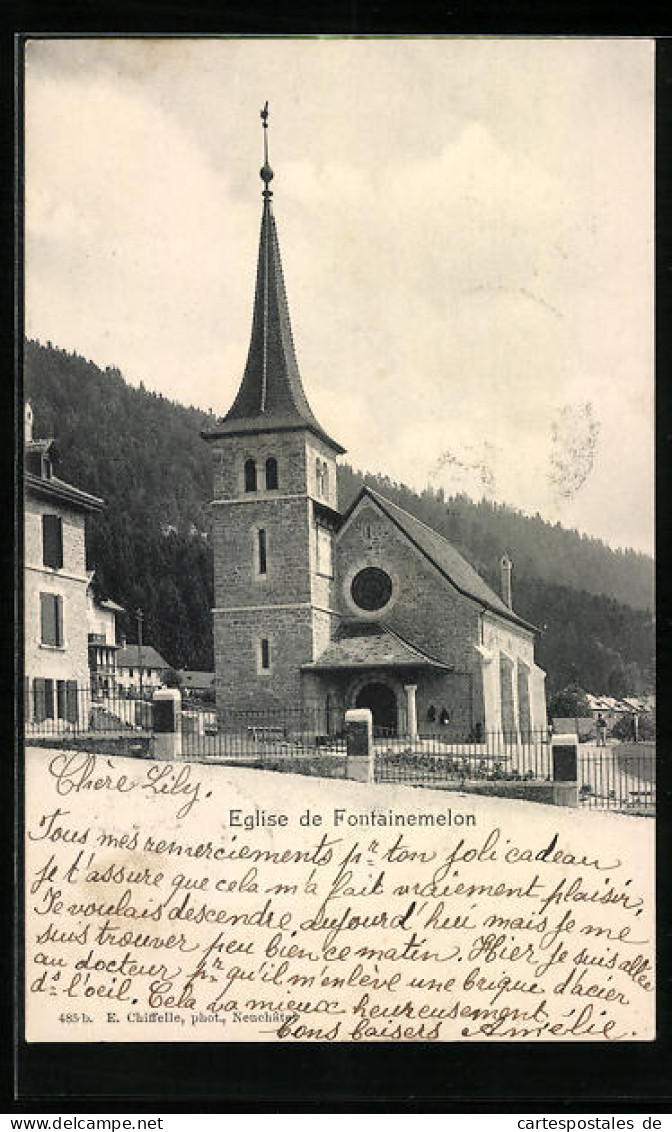 Chère Lily.
Eglise de Fontainemelon
Tous mes remerciements pr. ton joli cadeau
je t'assure que cela m'a fait vraiement plaisir.
Je voulais descendre aujourd'hui mais je me
suis trouver peu bien ce matin. Hier je suis allée
au docteur pr. qu'il m'enlève une brique d'acier
ds. l'oeil. Cela va mieux heureusement
485 b. E. Chiffelle, phot., Neuchâtel
Bons baisers Amélie.
www.delcampe.net
cartespostales de